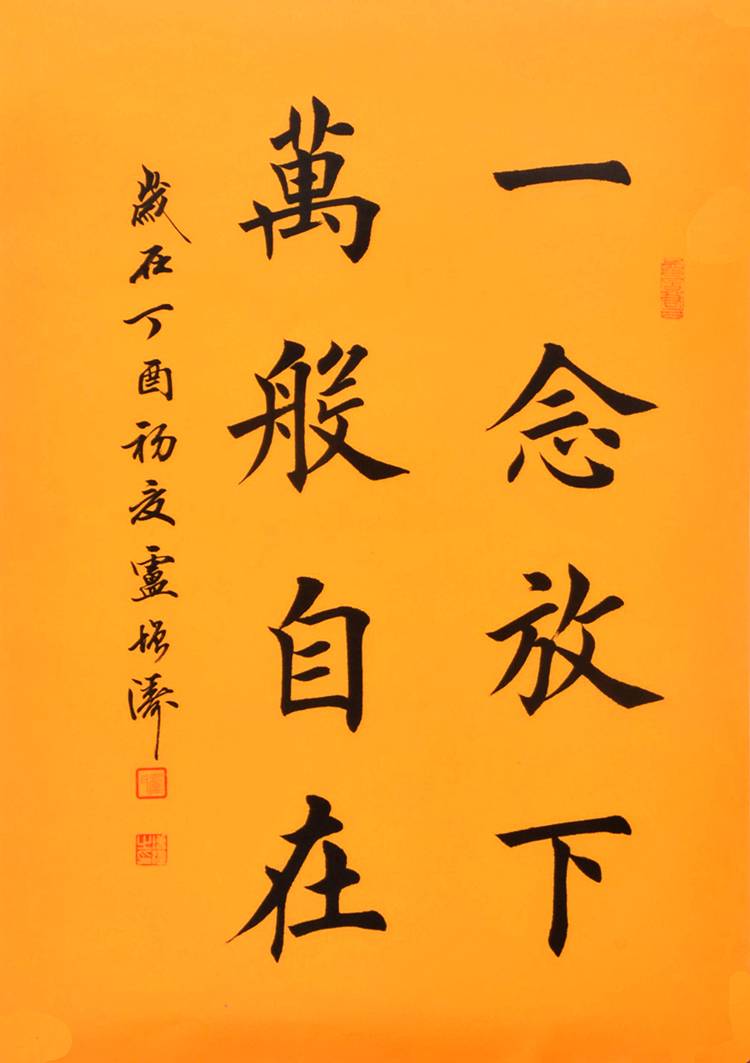 一念放下
萬般自在
歲在丁酉初夏盧振濤